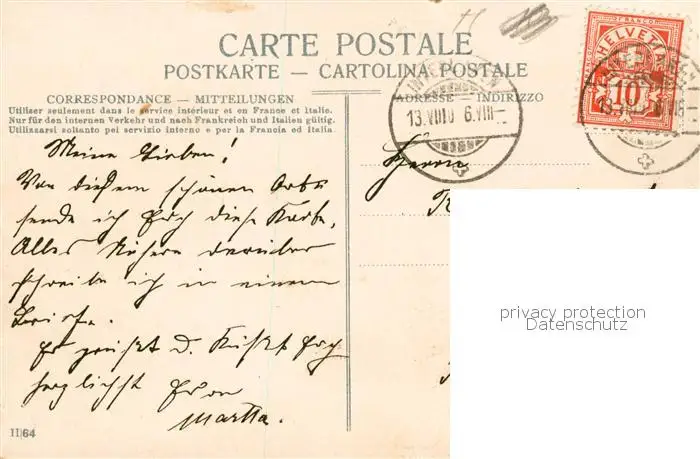 CARTE POSTALE
POSTKARTE — CARTOLINA POSTALE
CORRESPONDANCE — MITTEILUNGEN
Utiliser seulement dans le service intérieur et en France et Italie.
Nur für den internen Verkehr und nach Frankreich und Italien gültig.
Utilizzarsi soltanto pei servizio interno e per la Francia ed Italia.
ADRESSE — INDIRIZZO
FRANCO
HELVETIA
10
13.VIII10 6.VIII–
Meine Lieben!
Von diesem schönen Orte
sende ich Euch diese Karte,
Alles Nähere darüber
schreibe ich in einem
Briefe.
Es grüßt u. küßt Euch
herzlichst Eure
Martha.
Herrn
II|64
privacy protection
Datenschutz